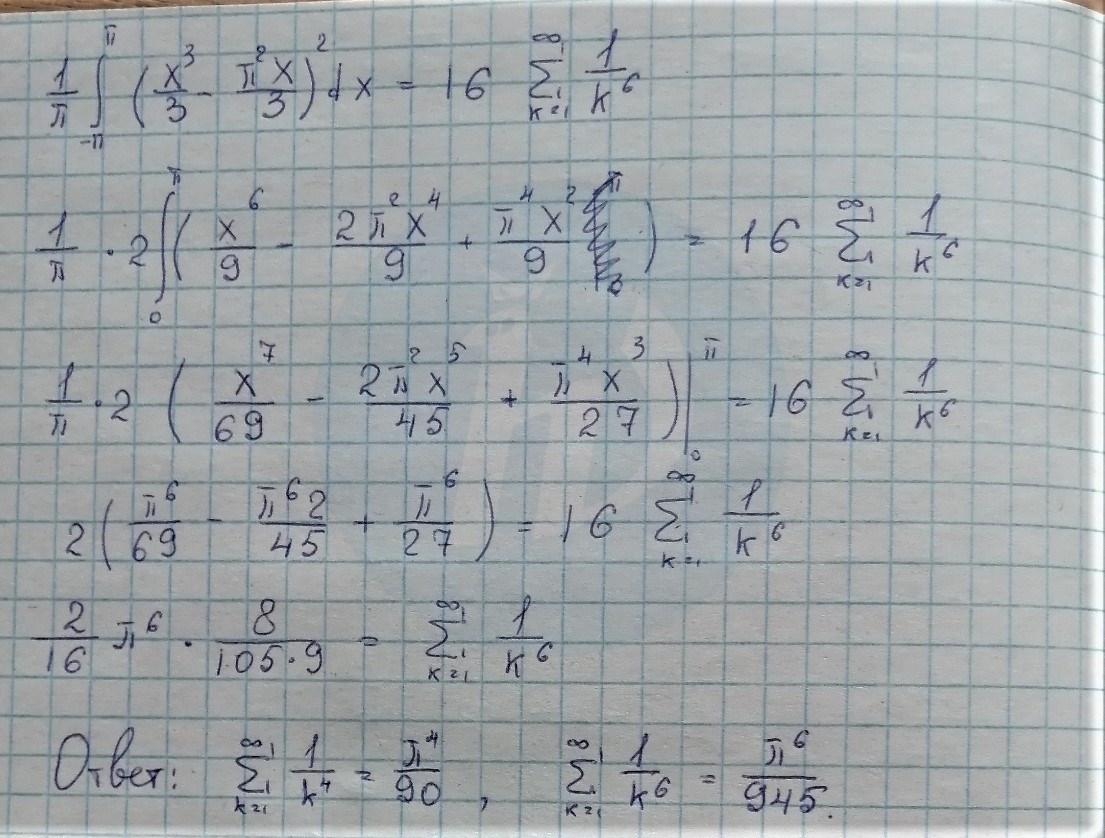 1/π ∫_{-π}^{π} (x³/3 - π²x/3)² dx = 16 ∑_{k=1}^{∞} 1/k⁶
1/π · 2 ∫_0^π (x⁶/9 - 2π²x⁴/9 + π⁴x²/9) = 16 ∑_{k=1}^{∞} 1/k⁶
1/π · 2 (x⁷/69 - 2π²x⁵/45 + π⁴x³/27)|_0^π = 16 ∑_{k=1}^{∞} 1/k⁶
2(π⁶/69 - π⁶2/45 + π⁶/27) = 16 ∑_{k=1}^{∞} 1/k⁶
2/16 π⁶ · 8/(105·9) = ∑_{k=1}^{∞} 1/k⁶
Ответ: ∑_{k=1}^{∞} 1/k⁴ = π⁴/90, ∑_{k=1}^{∞} 1/k⁶ = π⁶/945.